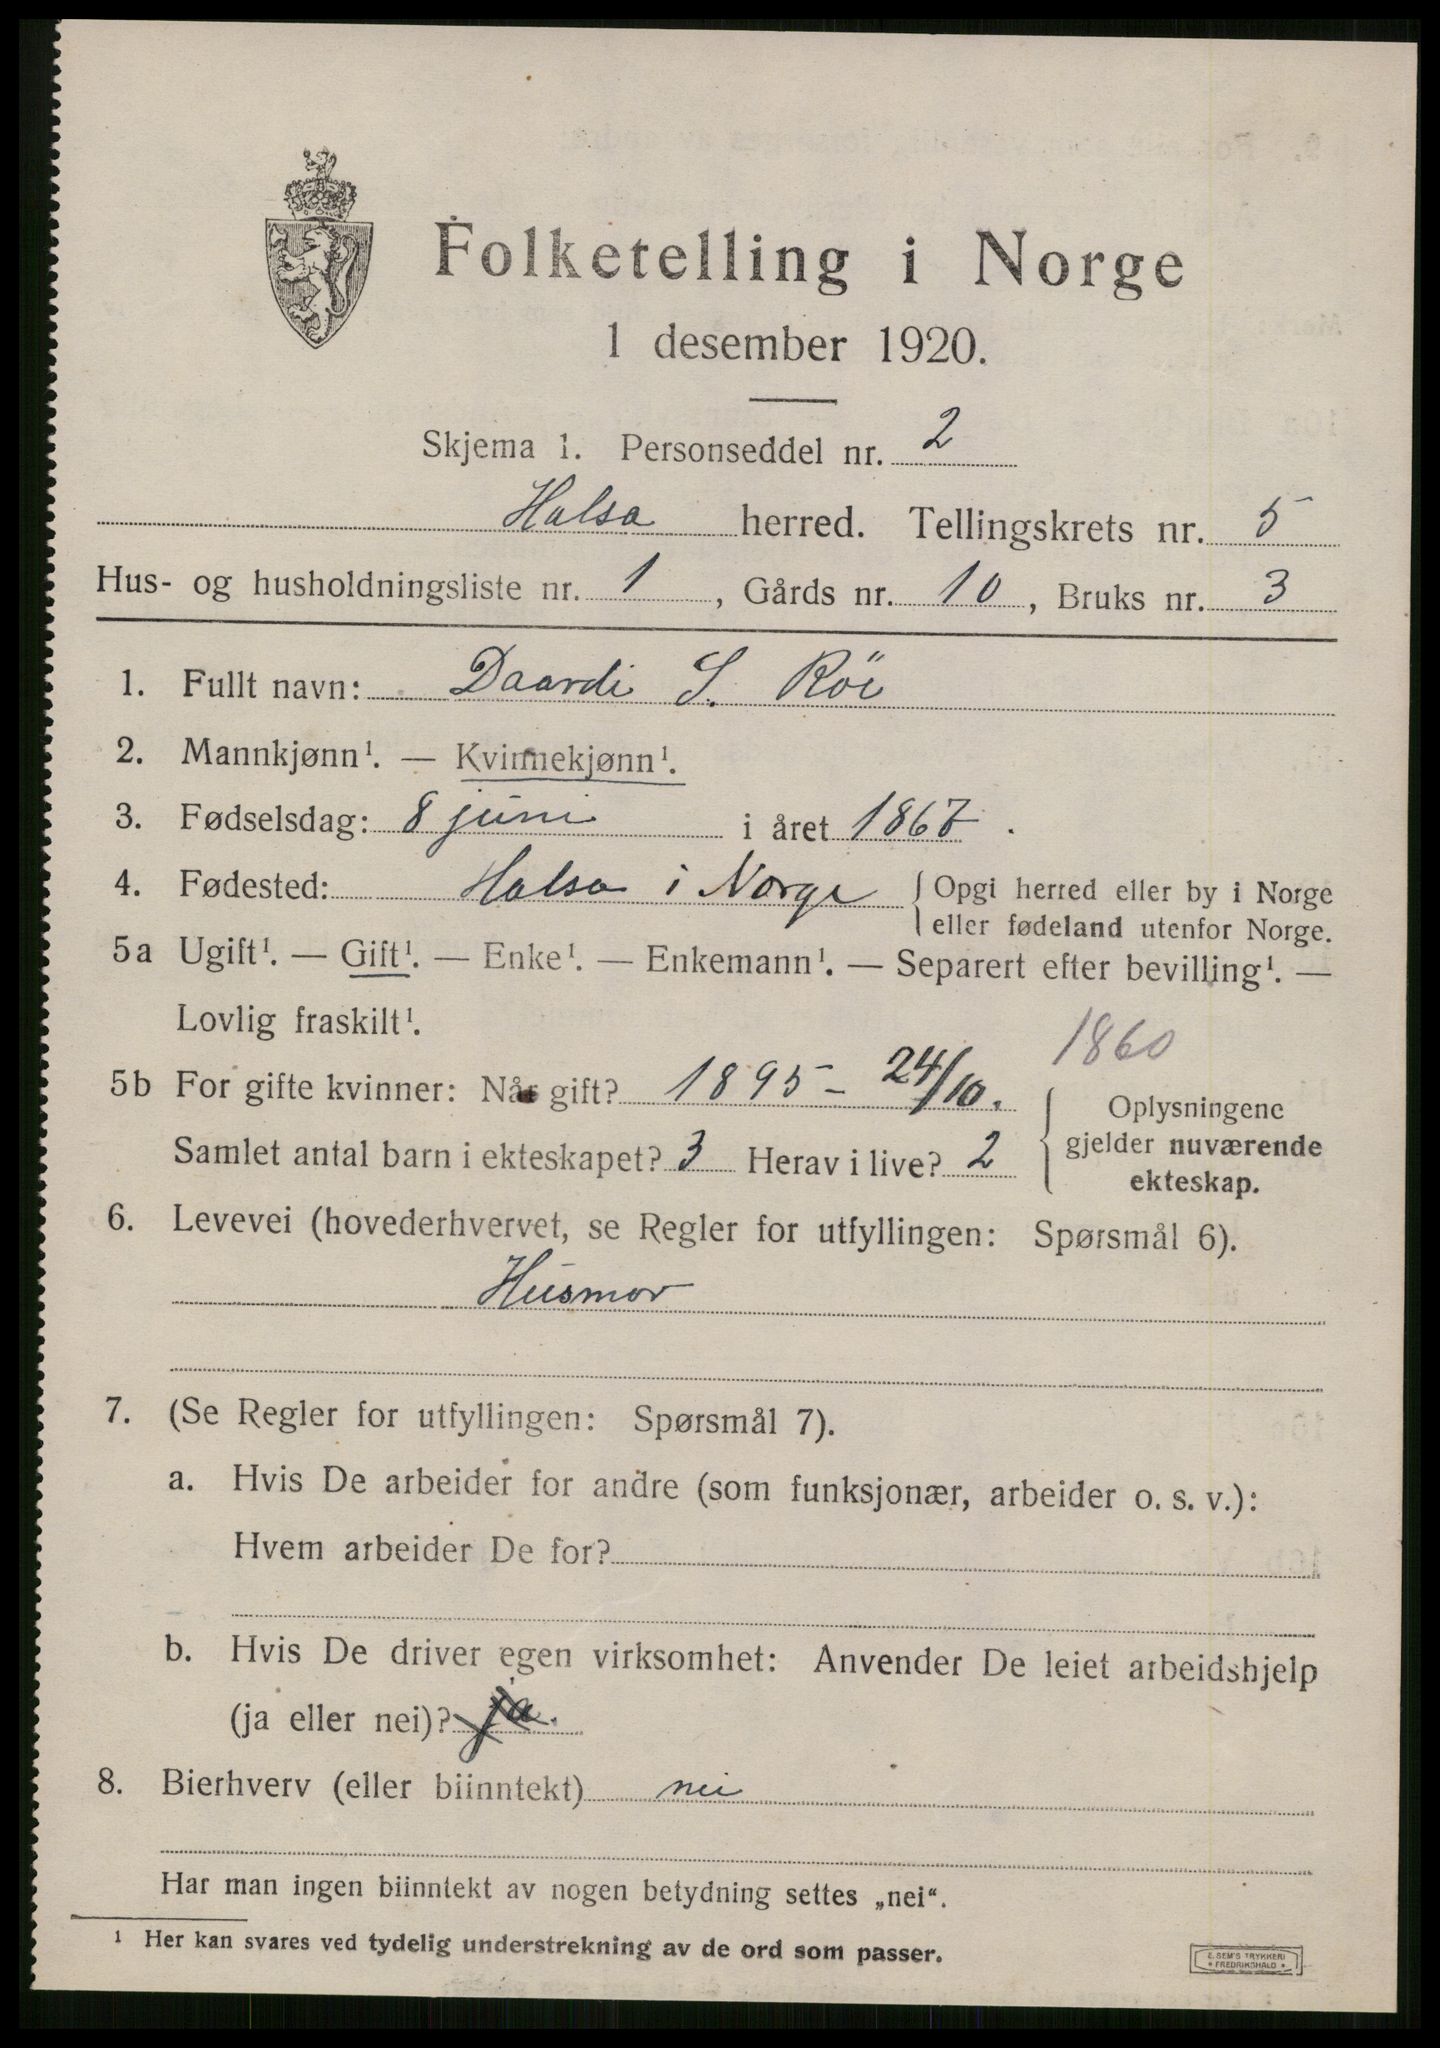 Folketelling i Norge
1 desember 1920.
Skjema 1. Personseddel nr. 2
Halsa herred. Tellingskrets nr. 5
Hus- og husholdningsliste nr. 1, Gårds nr. 10, Bruks nr. 3
1. Fullt navn: Daardi S. Röe
2. Mannkjønn¹. — Kvinnekjønn¹.
3. Fødselsdag: 8 juni i året 1867.
4. Fødested: Halsa i Norge Opgi herred eller by i Norge
eller fødeland utenfor Norge.
5a Ugift¹. — Gift¹. — Enke¹. — Enkemann¹. — Separert efter bevilling¹. —
Lovlig fraskilt¹.
1860
5b For gifte kvinner: Når gift? 1895 - 24/10. Oplysningene
Samlet antal barn i ekteskapet? 3 Herav i live? 2 gjelder nuværende
ekteskap.
6. Levevei (hovederhvervet, se Regler for utfyllingen: Spørsmål 6).
Husmor
7. (Se Regler for utfyllingen: Spørsmål 7).
a. Hvis De arbeider for andre (som funksjonær, arbeider o. s. v.):
Hvem arbeider De for?
b. Hvis De driver egen virksomhet: Anvender De leiet arbeidshjelp
(ja eller nei)? ja.
8. Bierhverv (eller biinntekt) nei
Har man ingen biinntekt av nogen betydning settes „nei“.
¹ Her kan svares ved tydelig understrekning av de ord som passer.
E. SEM'S TRYKKERI
• FREDRIKSHALD •